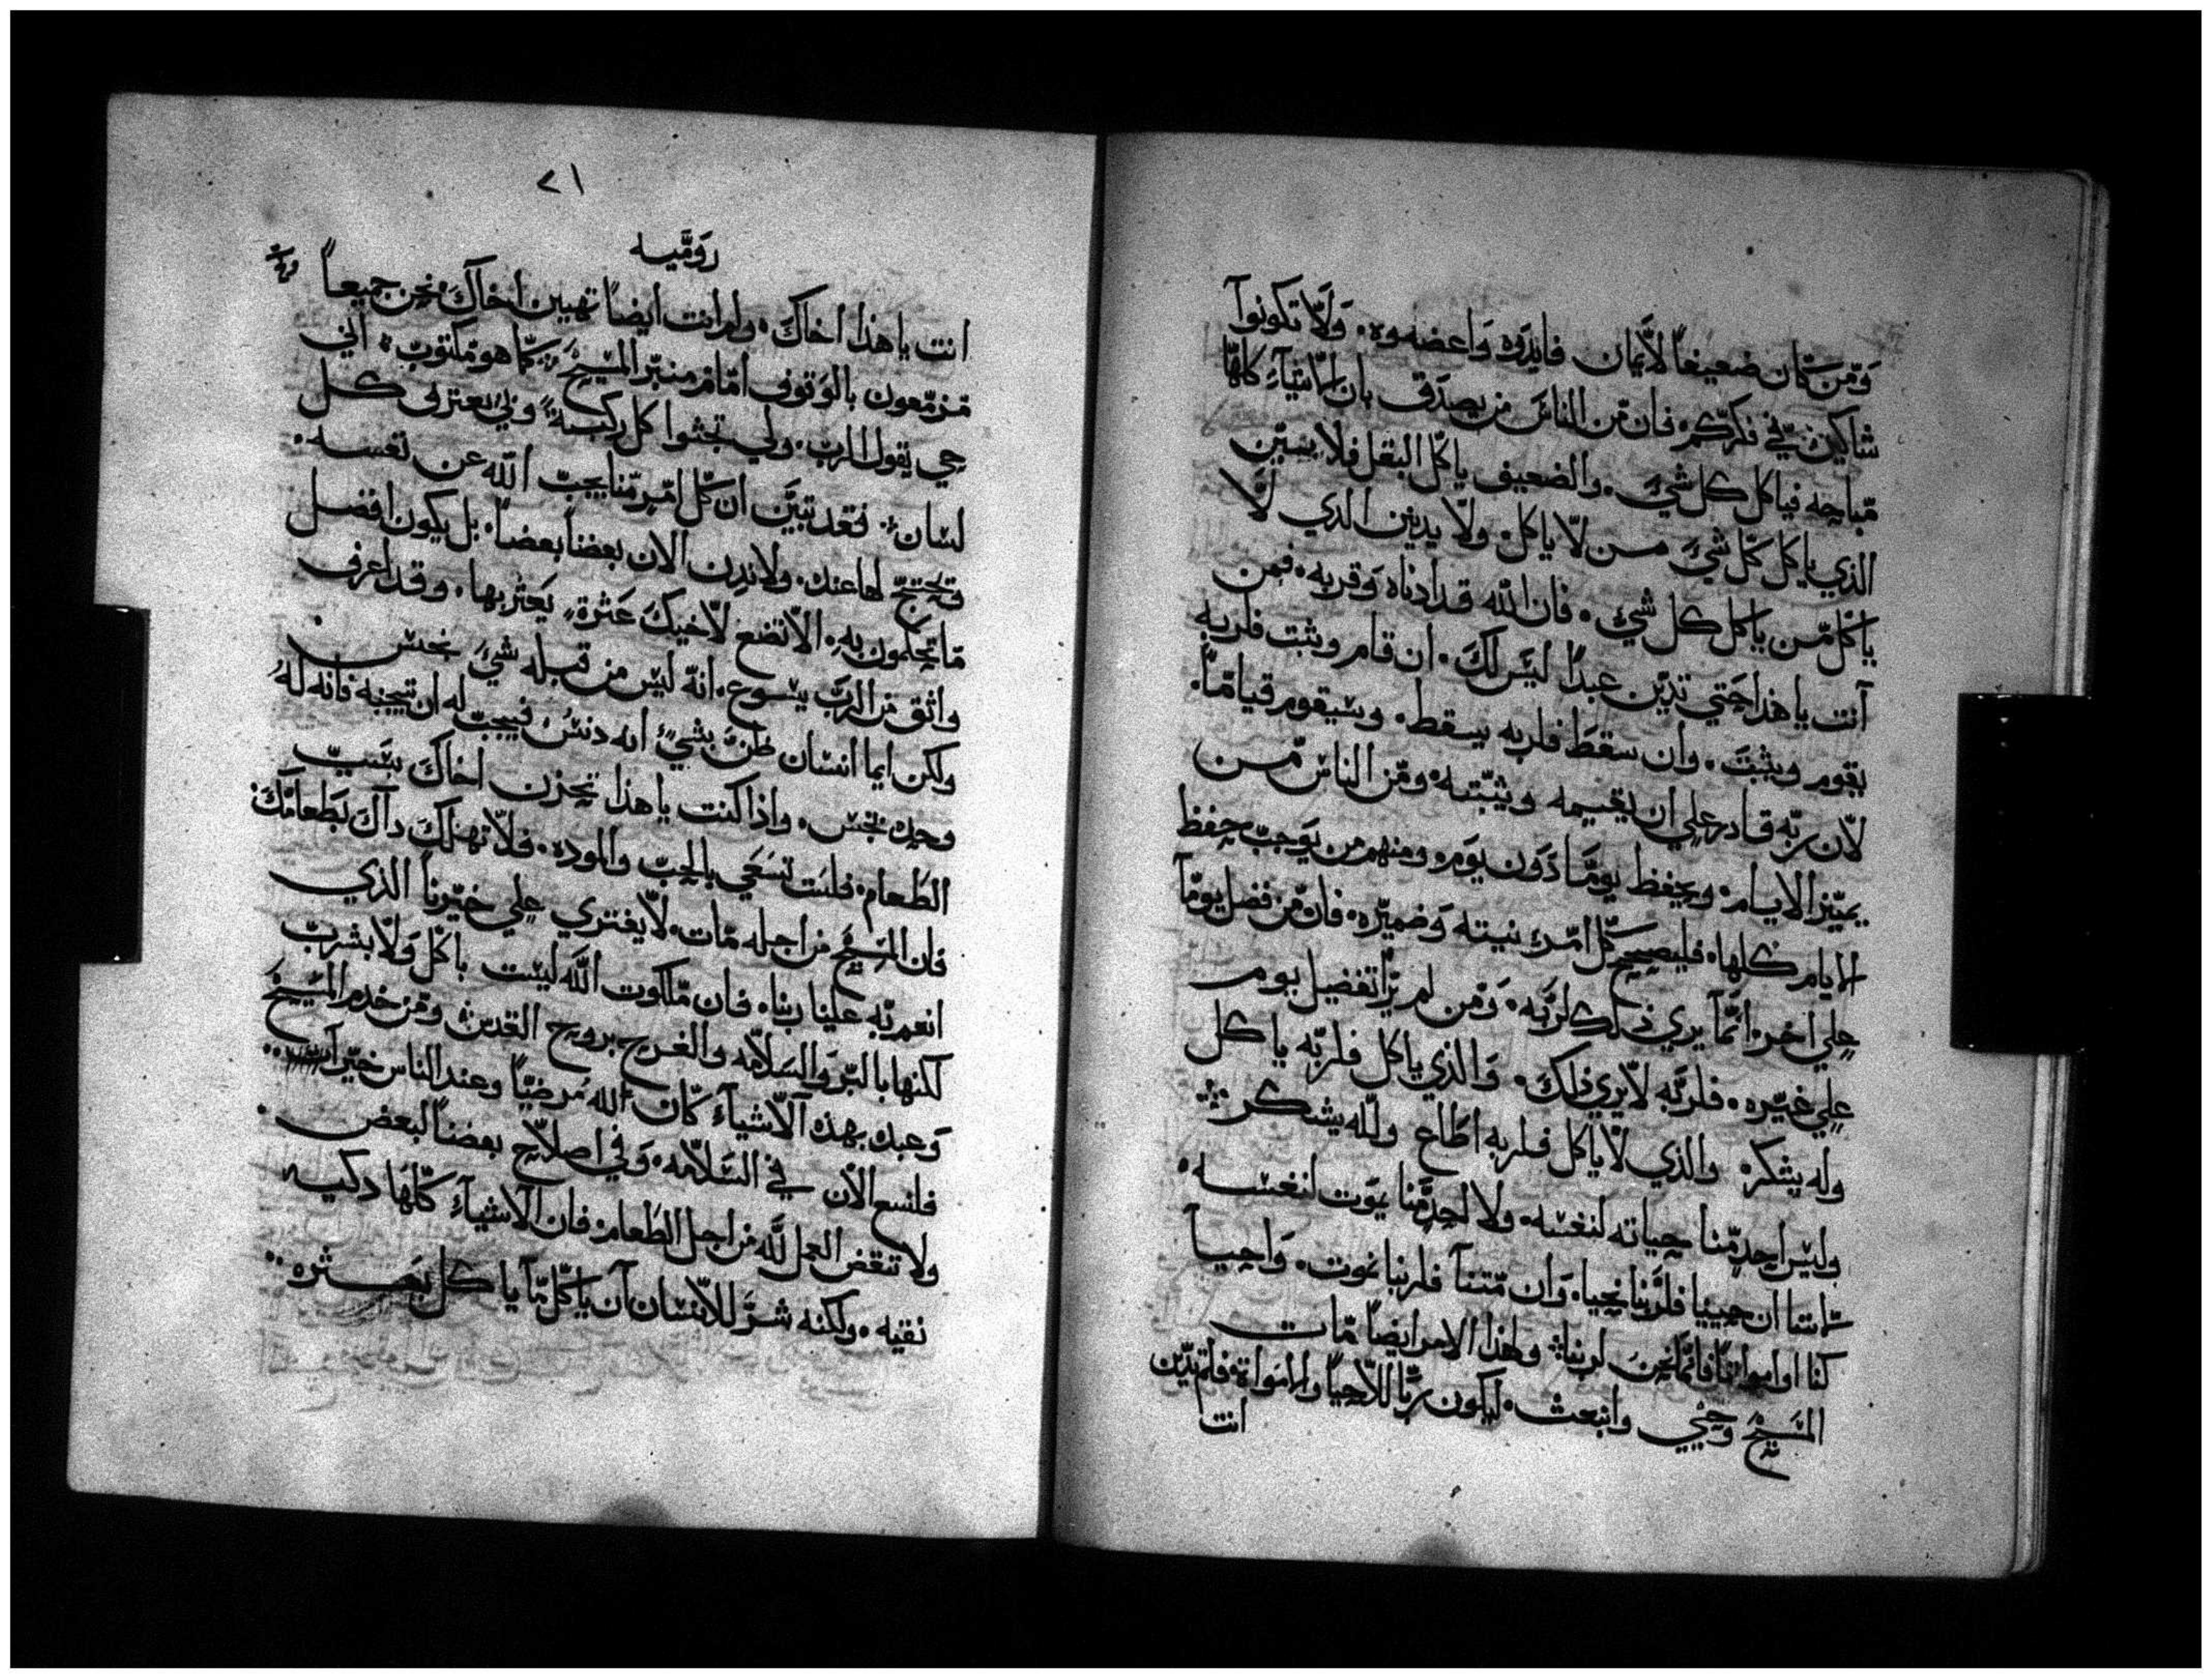 وَمَن كَان ضعيفاً لاَيمان فايدوه وَاعضدوه. وَلا تكونوا
شاكين في فكركم. فان من الناس من يصدق بان الاشياء كلها
مباحه فياكل كل شي. والضعيف ياكل البقل فلا يسين
الذي ياكل كل شي من لا ياكل. ولا يدين الذي لا
ياكل من ياكل كل شي. فان الله قد ادناه وقربه. فمن
انت يا هذا حتي تدين عبداً ليس لك. ان قام ويثبت فلربه
يقوم ويثبت. وان سقط فلربه يسقط. وسيقوم قياماً.
لان ربه قادر علي ان يقيمه ويثبته. ومن الناس من
يميز الايام. ويحفظ يوماً دون يوم. ومنهم من يوجب حفظ
الايام كلها. فليصحح كل امرئ نيته وضميره. فان من فضل يوماً
علي اخر. انما يري ذلك لربه. ومن لم ير تفضيل يوم
علي غيره. فلربه لا يري ذلك. والذي ياكل فلربه ياكل
وله يشكر. والذي لا ياكل فلربه اطاع ولله يشكر
وليس احد منا حياته لنفسه. ولا احد منا يموت لنفسه.
لاننا ان حيينا فلربنا نحيا. وان متنا فلربنا نموت. واحيا
كنا او امواتاً فانما نحن لربنا. ولهذا الامر ايضاً مات
المسيح وحيي وانبعث. ليكون رباً للاحيا والاموات. فلم تدين
انت
٢١
روميه
انت يا هذا اخاك. ولم انت ايضاً تهين اخاك. نحن جميعاً
مزمعون بالوقوف امام منبر المسيح. كما هو مكتوب. اني
حي يقول الرب. ولي تجثوا كل ركبة. ولي يعترف كل
لسان. فقد تبين ان كل امر منا يجب الله عن نفسه.
وتحتج لها عنك. ولا ندن الان بعضنا بعضاً. بل يكون افضل
ما تحكمون به. الا تضع لاخيك عثرة. يعثر بها. وقد اعرف
واثق من الرب يسوع. انه ليس من قبله شي نجس
ولكن ايما انسان ظن بشي انه دنس فيجب له ان يتجنبه فانه له
وحده نجس. واذا كنت يا هذا تحزن اخاك بسبب
الطعام. فلست تسعي بالحب والموده. فلا تهلك داك بطعامك
فان المسيح من اجله مات. لا يفتري علي خيرنا الذي
انعم به علينا ربنا. فان ملكوت الله ليست باكل ولا بشرب
لكنها بالبر والسلامه والفرح بروح القدس ومن خدم المسيح
وعبده بهذه الاشياء كان لله مرضياً وعند الناس خيراً
فلنسع الان في السلامه. وفي اصلاح بعضنا لبعض.
ولا تنقض العمل لله من اجل الطعام. فان الاشياء كلها دكيه
نقيه. ولكنه شر للانسان ان ياكل ما ياكل بعثره